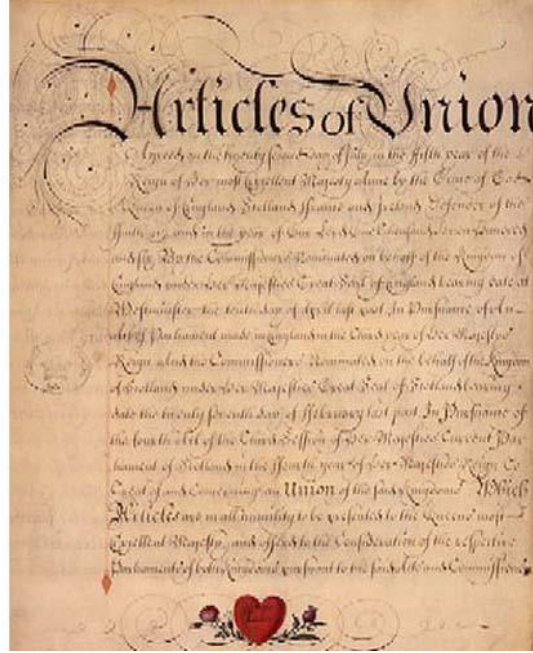 Articles of Union
Agreed on the twenty second day of July, in the fifth year of the
Reign of Her most Excellent Majesty Anne by the Grace of God
Queen of England Scotland France and Ireland Defender of the
Faith &c, and in the year of Our Lord One thousand seven hundred
and six By the Commissioners Nominated on behalf of the Kingdom of
England under Her Majesties Great Seal of England bearing date at
Westminster the tenth day of April last past In Pursuance of An
Act of Parliament made in England in the third year of Her Majesties
Reign And the Commissioners Nominated on the behalf of the Kingdom
of Scotland under Her Majesties Great Seal of Scotland bearing
date the twenty seventh day of February last past In Pursuance of
the fourth Act of the third Session of Her Majesties Current Par
liament of Scotland in the fourth year of Her Majesties Reign To
Treat of and Concerning an Union of the said Kingdoms Which
Articles are in all humility to be presented to the Queens most
Excellent Majesty and offered to the Consideration of the respective
Parliaments of both Kingdoms pursuant to the said Acts and Commissions